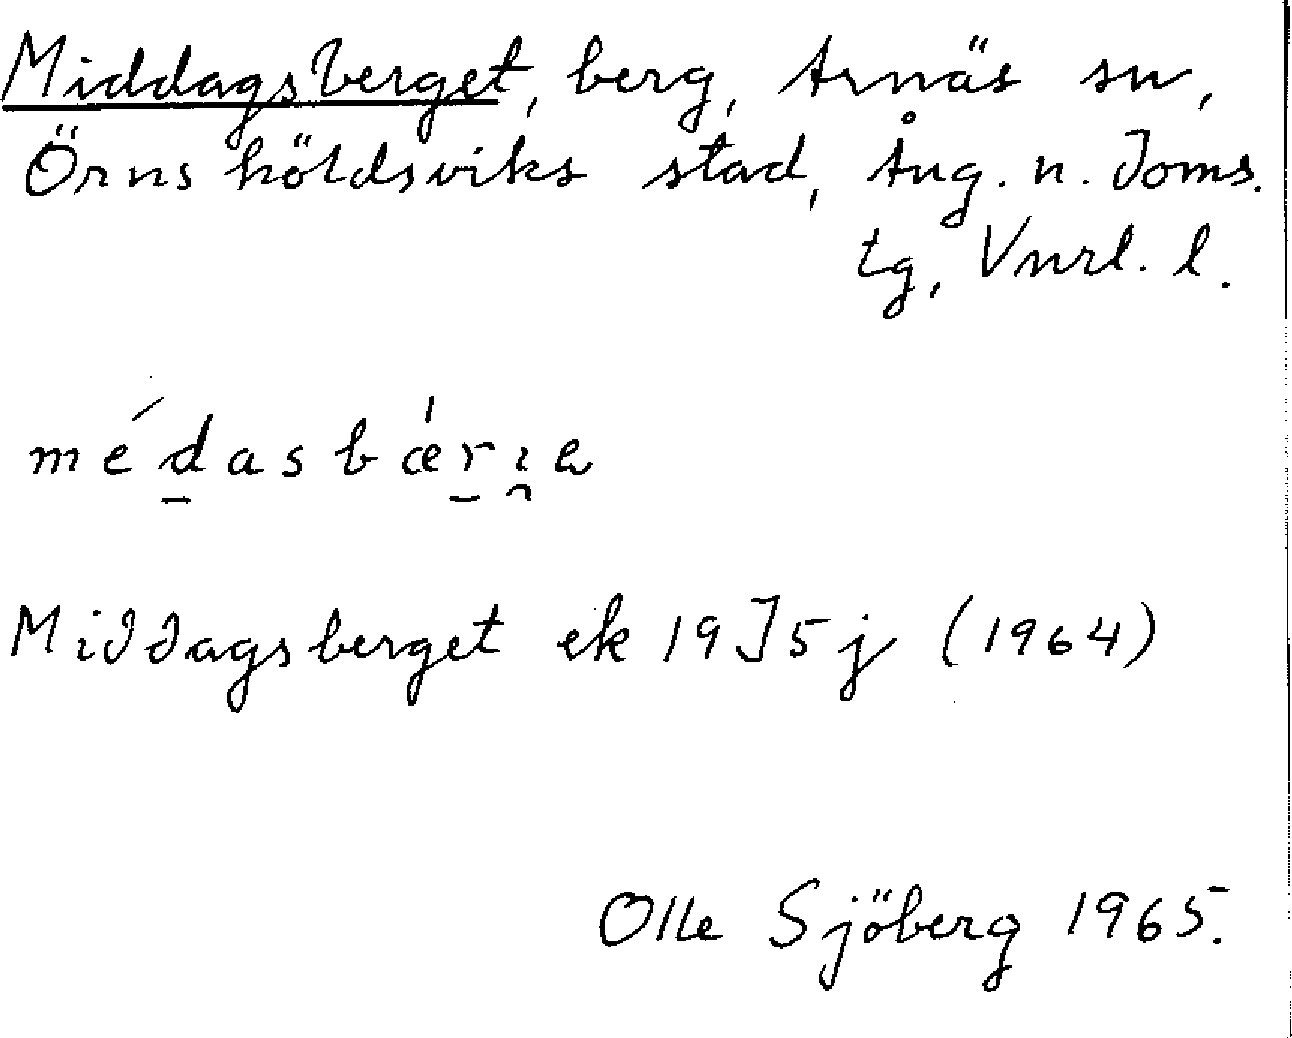 Middagsberget, berg, Arnäs sn,
Örnsköldsviks stad, Ång. n. Doms.
tg, Vnrl. l.
médasbǽrı̯e
Middagsberget ek 19J5j (1964)
Olle Sjöberg 1965.